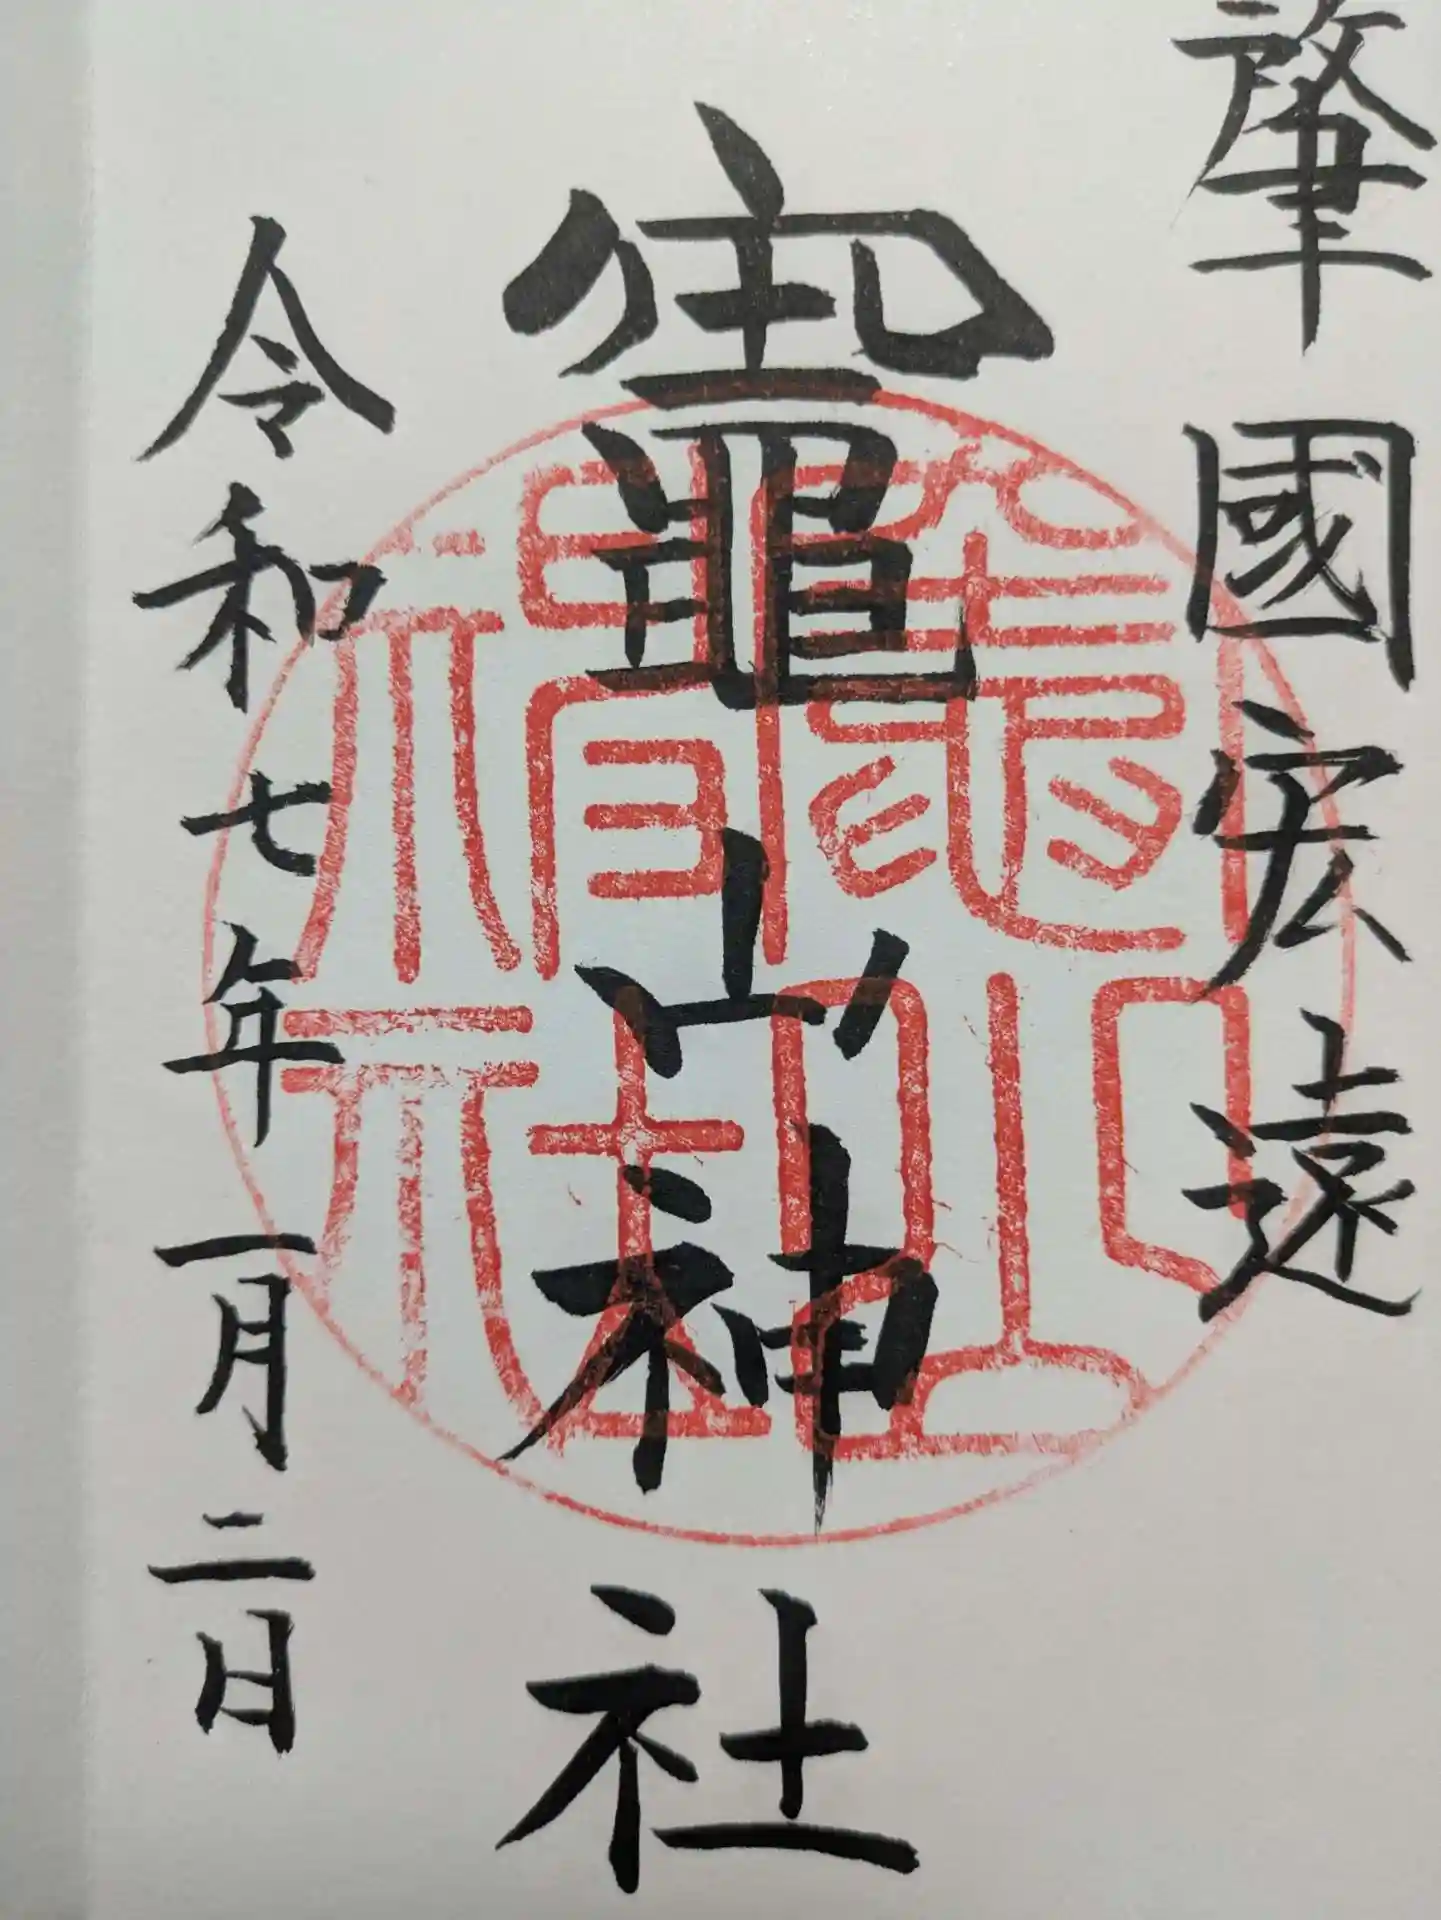 肇國宏遠
竈山神社
令和七年一月二日
竈山
神社